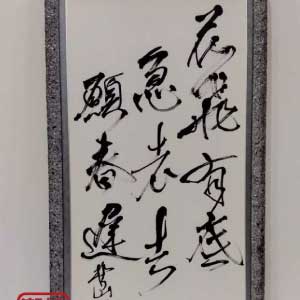 花飛有底
急老去
願春遲